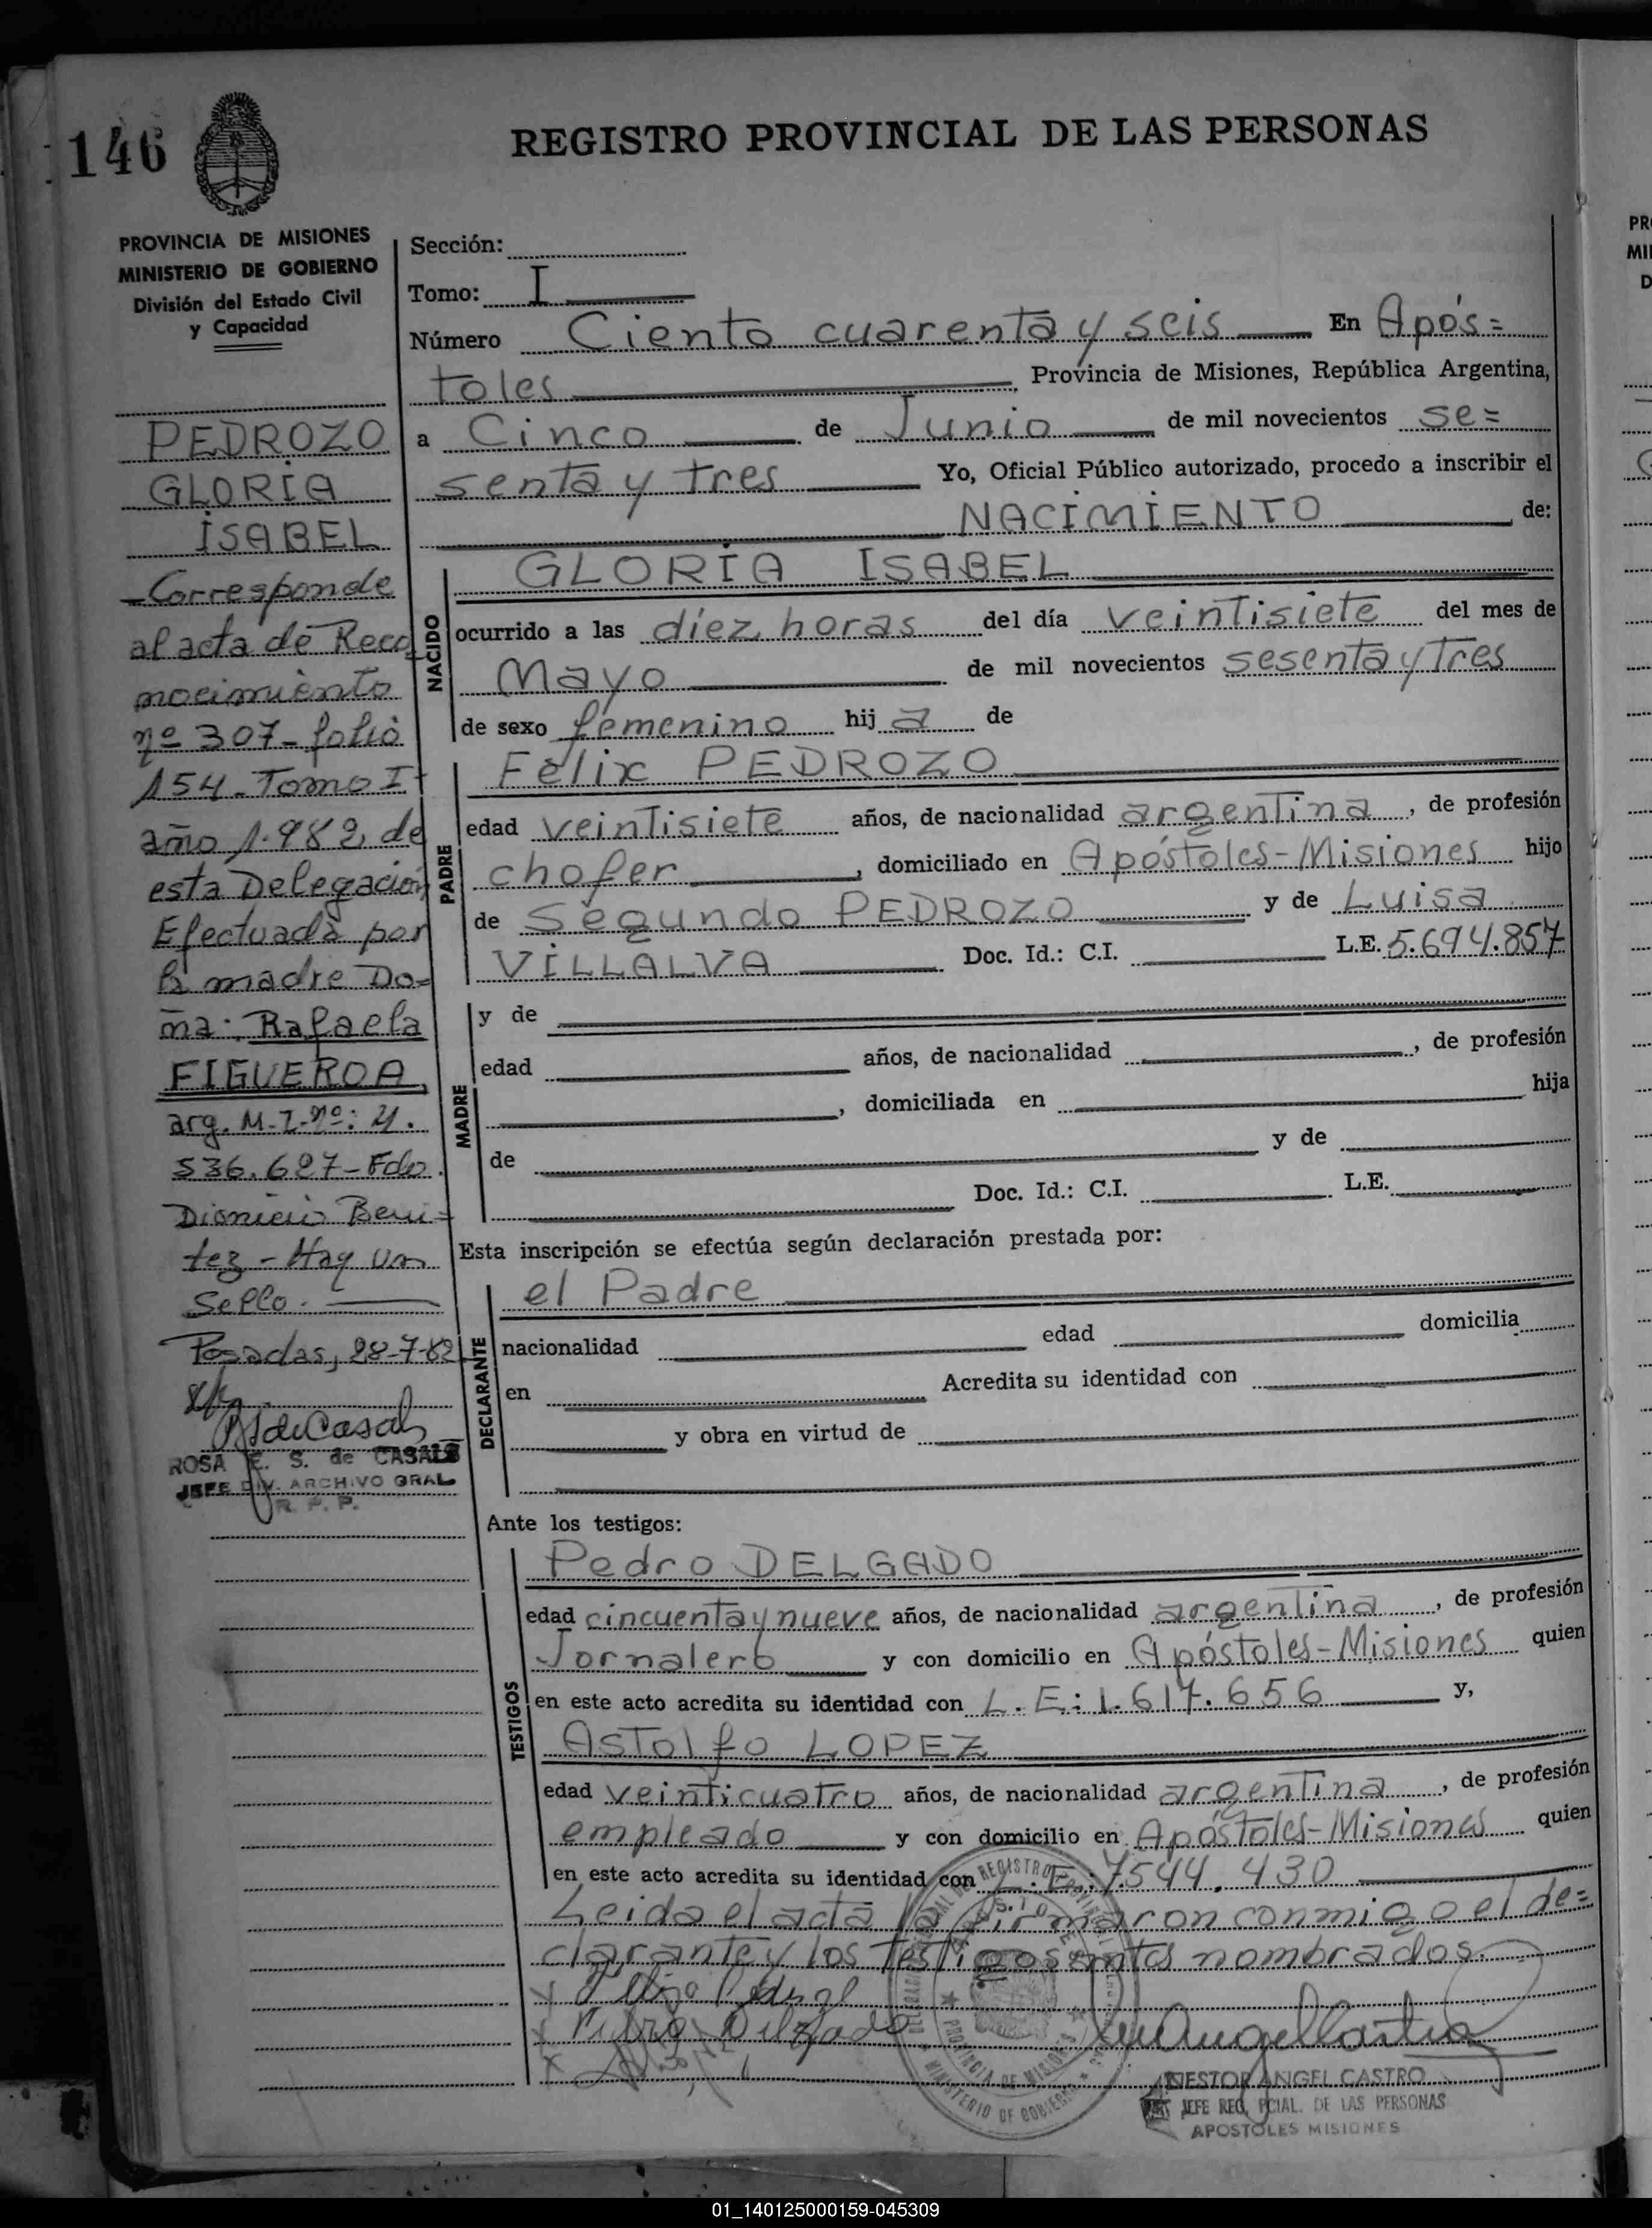 146
REGISTRO PROVINCIAL DE LAS PERSONAS
PROVINCIA DE MISIONES
MINISTERIO DE GOBIERNO
División del Estado Civil
y Capacidad
PEDROZO
GLORIA
ISABEL
-Corresponde
al acta de Reco
nocimiento
nº 307-folio
154-Tomo I-
año 1.982, de
esta Delegación
Efectuada por
la madre Do=
ña: Rafaela
FIGUEROA,
arg. M.I.nº: 4.
536.627-Fdo.
Dionicio Beni=
tez - Hay un
Sello.
Posadas, 28-7-82
ROSA E. S. de CASALS
JEFE DIV. ARCHIVO GRAL
R. P. P.
Sección:
Tomo: I
Número Ciento cuarenta y seis En Após=
toles Provincia de Misiones, República Argentina,
a Cinco de Junio de mil novecientos se=
senta y tres Yo, Oficial Público autorizado, procedo a inscribir el
NACIMIENTO de:
NACIDO
GLORIA ISABEL
ocurrido a las diez horas del día veintisiete del mes de
Mayo de mil novecientos sesenta y Tres
de sexo femenino hij a de
PADRE
Félix PEDROZO
edad veintisiete años, de nacionalidad argentina, de profesión
chofer, domiciliado en Apóstoles-Misiones hijo
de Segundo PEDROZO y de Luisa
VILLALVA Doc. Id.: C.I. L.E. 5.694.857
MADRE
y de
edad años, de nacionalidad , de profesión
, domiciliada en hija
de y de
Doc. Id.: C.I. L.E.
Esta inscripción se efectúa según declaración prestada por:
DECLARANTE
el Padre
nacionalidad edad domicilia
en Acredita su identidad con
y obra en virtud de
Ante los testigos:
TESTIGOS
Pedro DELGADO
edad cincuenta y nueve años, de nacionalidad argentina, de profesión
Jornalero y con domicilio en Apóstoles-Misiones quien
en este acto acredita su identidad con L.E: 1.617.656 y,
Astolfo LOPEZ
edad veinticuatro años, de nacionalidad argentina, de profesión
empleado y con domicilio en Apóstoles-Misiones quien
en este acto acredita su identidad con L.E.: 7.544.430
Leida el acta la firmaron conmigo el de=
clarante y los Testigos antes nombrados.
PROVINCIA DE MISIONES
MINISTERIO DE GOBIERNO
NESTOR ANGEL CASTRO
JEFE REG. PCIAL. DE LAS PERSONAS
APOSTOLES MISIONES
01_140125000159-045309